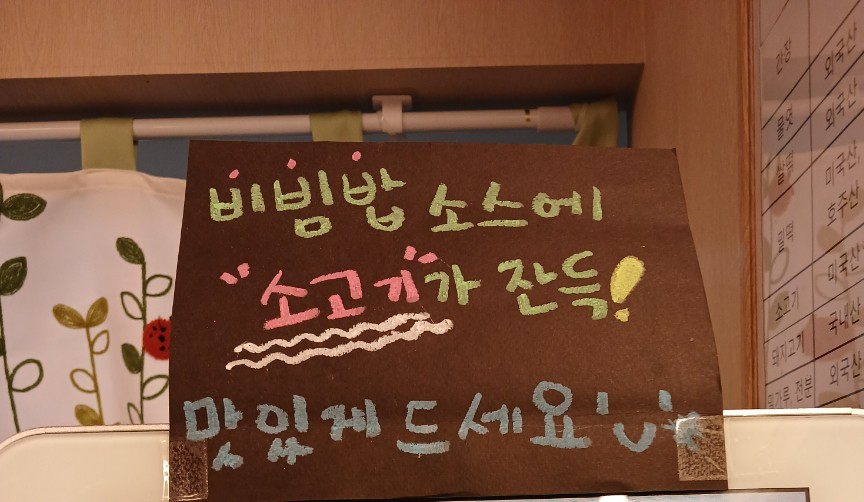 비빔밥 소스에
"소고기"가 잔득!
맛있게 드세요!
간장 외국산
물엿 외국산
쌀떡 미국산
밀떡 호주산
소고기 미국산
돼지고기 국내산
전분 외국산